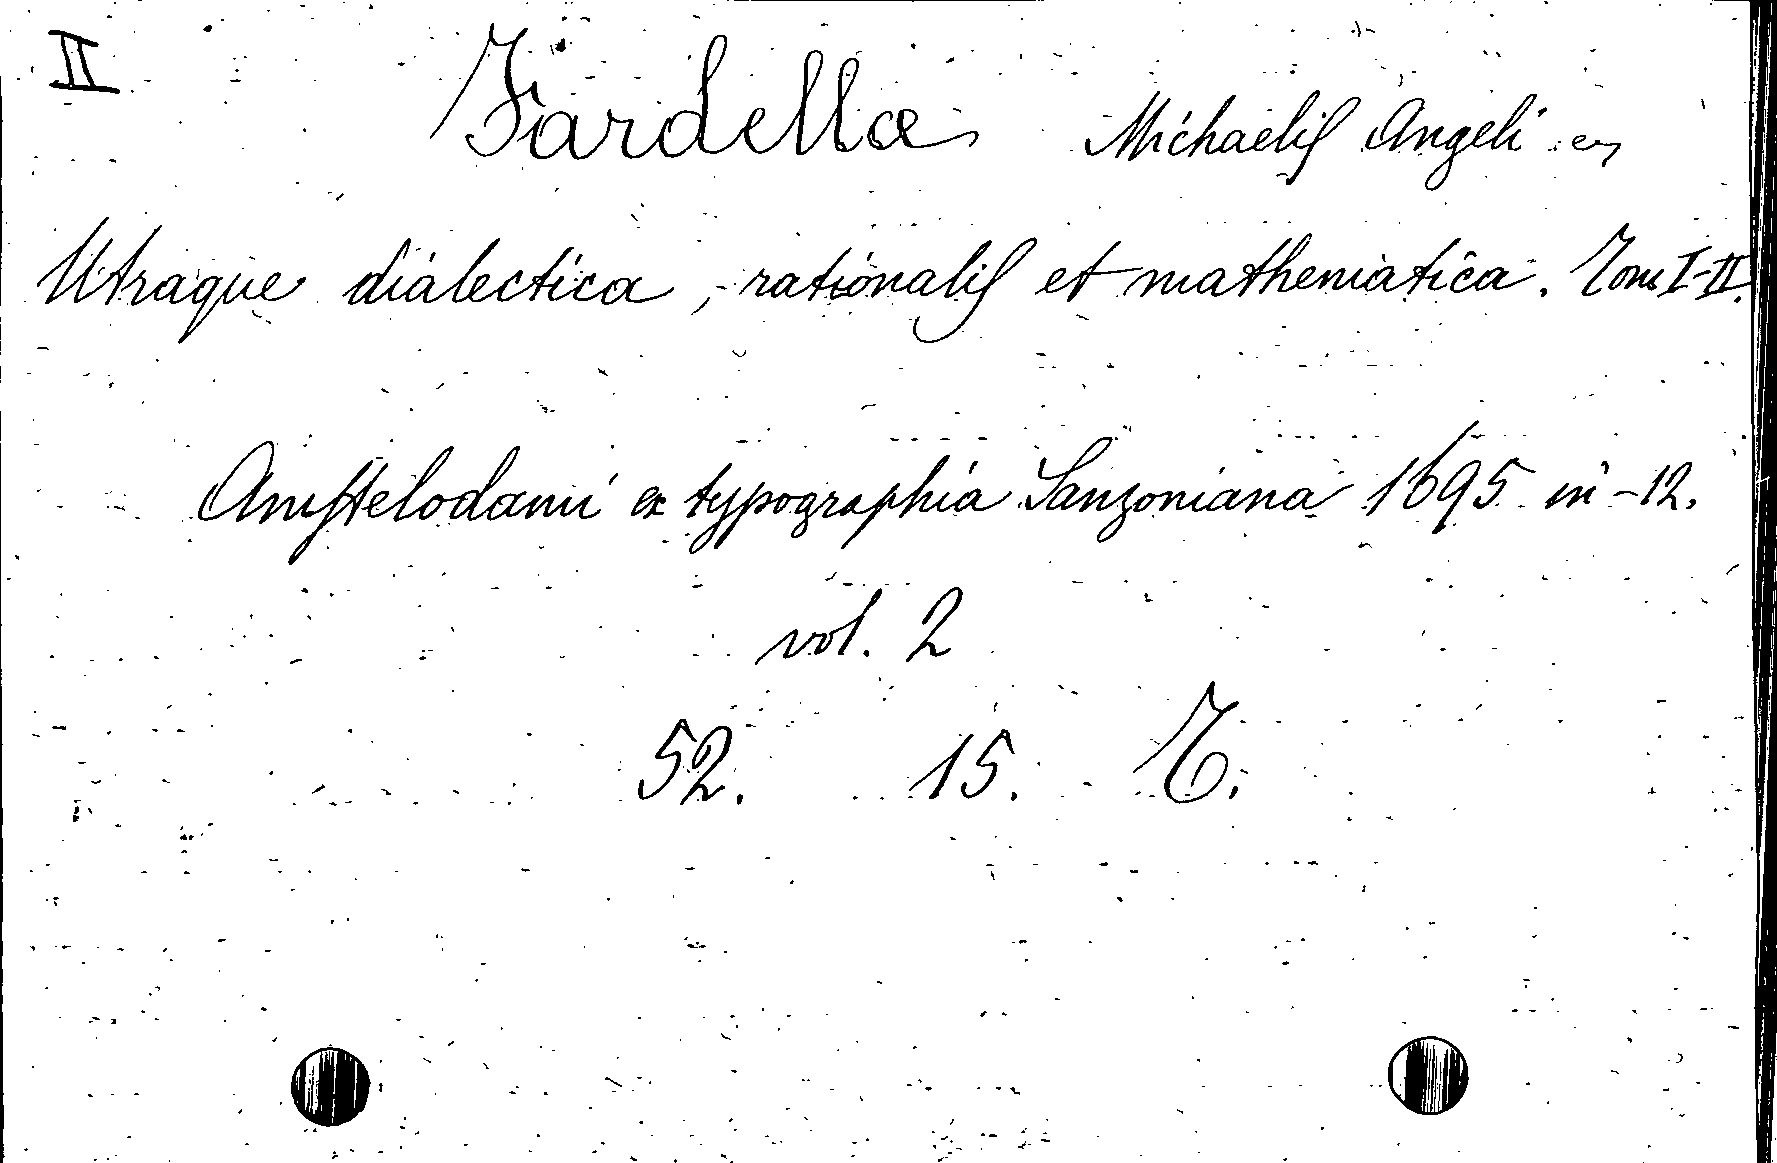 II
Fardellæ Michaelis Angeli
Utraque dialectica, rationalis et mathematica. Tom I-II.
Amstelodami ex typographia Sanzoniana 1695 in -12.
vol. 2
52. 15. T.